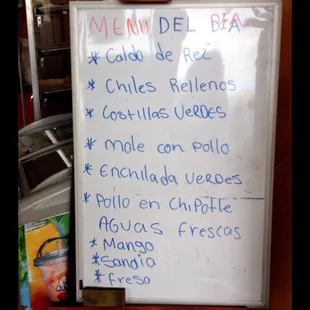 MENU DEL DIA
* Caldo de Rez
* Chiles Rellenos
* Costillas VERDES
* Mole con pollo
* Enchilada VERDES
* Pollo en CHIPOTLE
AGUAS Frescas
* Mango
* Sandia
* Freso